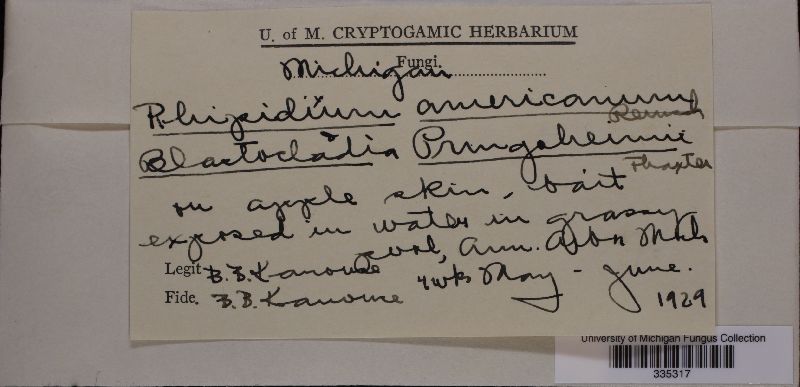 U. of M. CRYPTOGAMIC HERBARIUM
Fungi.
Michigan
Rhipidium americanum
Blastocladia Pringsheimii
Thaxter
on apple skin, bait
exposed in water in grassy
pool, Ann. Arbor Mich
Legit B.B. Kanouse
4 wks May - June.
Fide. B.B. Kanouse
1929
University of Michigan Fungus Collection
335317